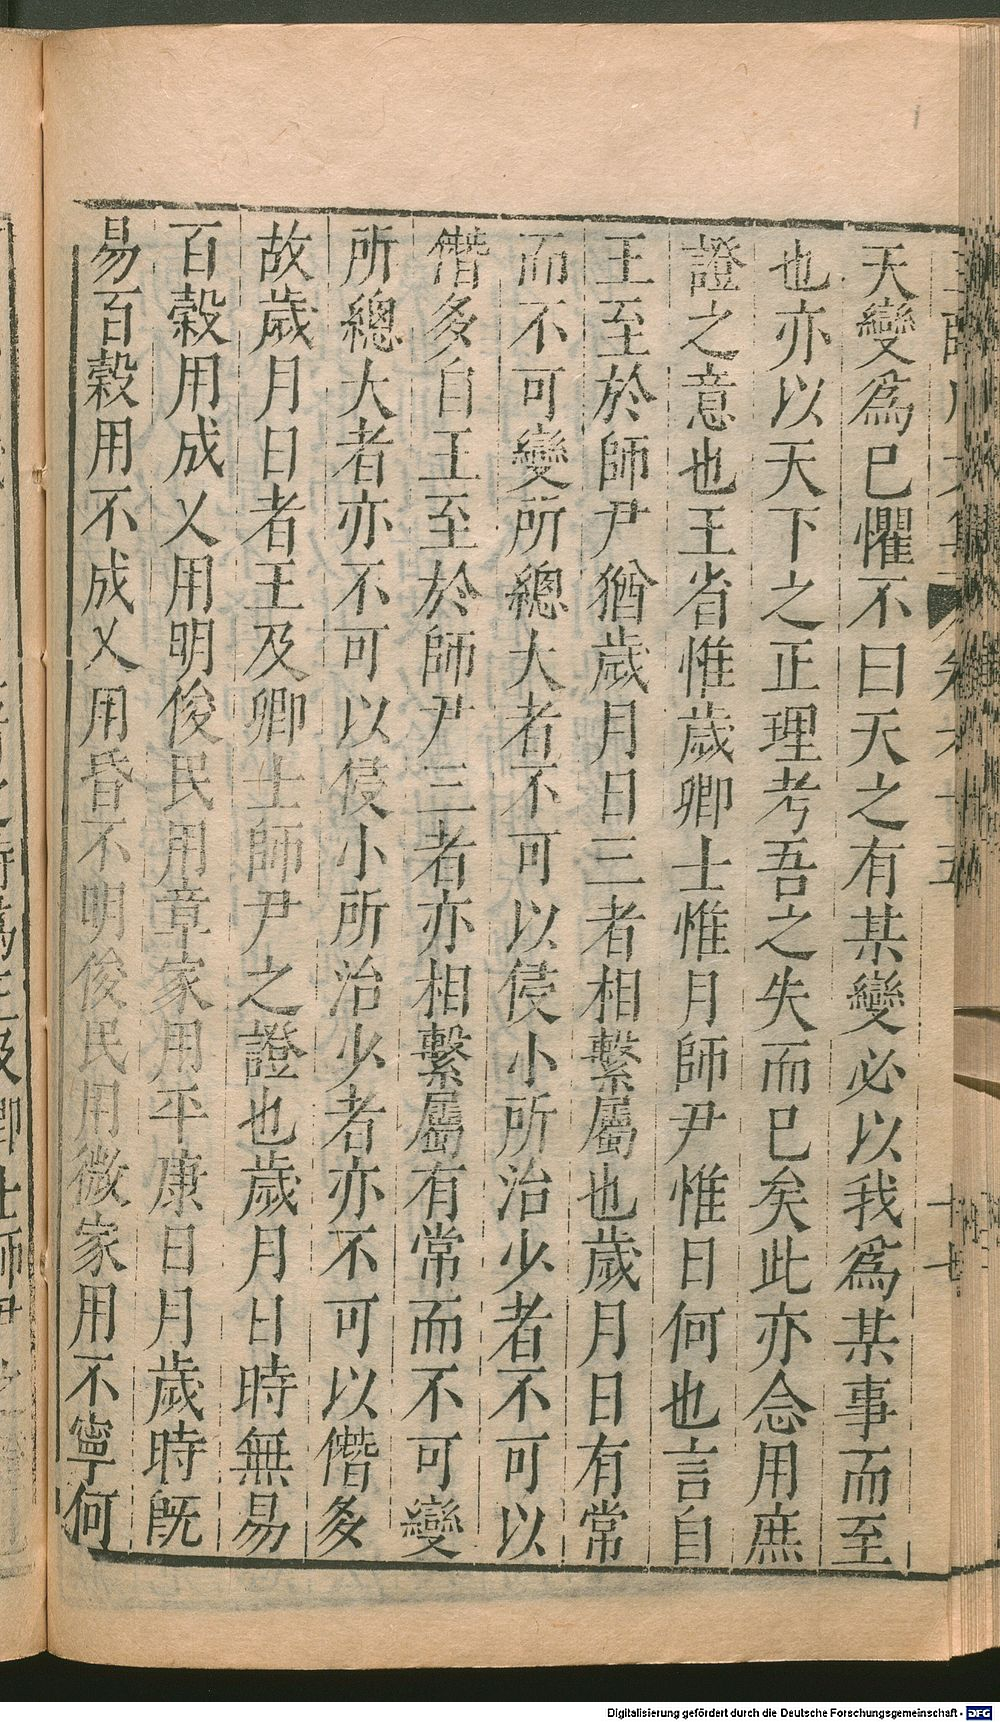 天變爲已懼不曰天之有某變必以我爲某事而至
也亦以天下之正理考吾之失而已矣此亦念用庶
證之意也王省惟歲卿士惟月師尹惟日何也言自
王至於師尹猶歲月日三者相繫屬也歲月日有常
而不可變所總大者不可以侵小所治少者不可以
僭多自王至於師尹三者亦相繫屬有常而不可變
所總大者亦不可以侵小所治少者亦不可以僭多
故歲月日者王及卿士師尹之證也歲月日時無易
百穀用成乂用明俊民用章家用平康日月歲時旣
易百穀用不成乂用昏不明俊民用微家用不寧何
Digitalisierung gefördert durch die Deutsche Forschungsgemeinschaft - DFG